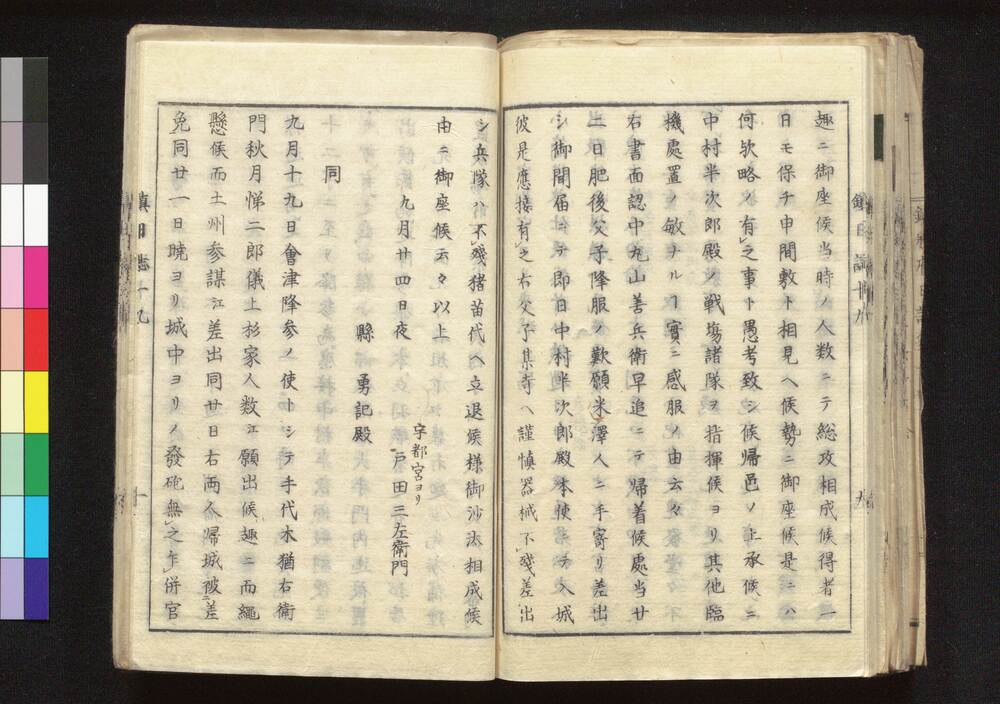 趣ニ御座候当時ノ人数ニテ総攻相成候得者一
日モ保チ申間敷ト相見ヘ候勢ニ御座候是ニハ
何欤略有之事ト愚考致シ候帰邑ノ上承候ニ
中村半次郎殿シ戦塲諸隊ヲ指揮候ヨリ其他臨
機處置ノ敏ナルヿ實ニ感服ノ由云々
右書面認中丸山善兵衛早追ニテ帰着候處当廿
二日肥後父子降服ノ歎願米澤人ニ手寄リ差出
シ御聞届ニテ即日中村半次郎殿本使ニテ入城
彼是應接有之右父子某寺ヘ謹慎器械不残差出
シ兵隊ハ不残猪苗代ヘ立退候様御沙汰相成候
由ニ御座候云々以上
九月廿四日夜
宇都宮ヨリ
戸田三左衛門
縣勇記殿
同
九月十九日會津降参ノ使トシテ手代木猶右衛
門秋月悌二郎儀上杉家人数江願出候趣ニ而縄
懸候而土州参謀江差出同廿日右両人帰城被差
免同廿一日暁ヨリ城中ヨリノ發砲無之乍併官